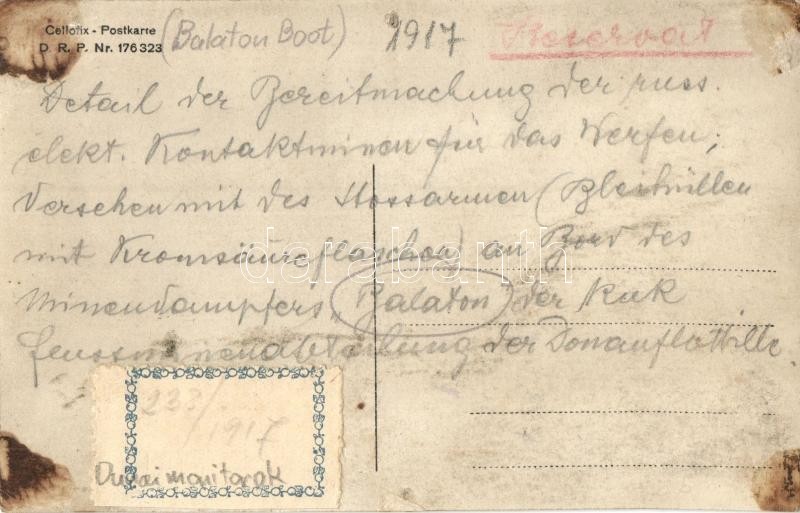 Cellofix - Postkarte
D. R. P. Nr. 176323
(Balaton Boot) 1917 Reservat
Detail der Bereitmachung der russ.
elekt. Kontaktminen für das Werfen;
Versehen mit des Stossarmen (Bleihüllen
mit Kromsäureflaschen) an Bord des
Minendampfers „Balaton" der KuK
Flussminenabteilung der Donauflottille
darabanth
233/
1917
Dunai monitorok